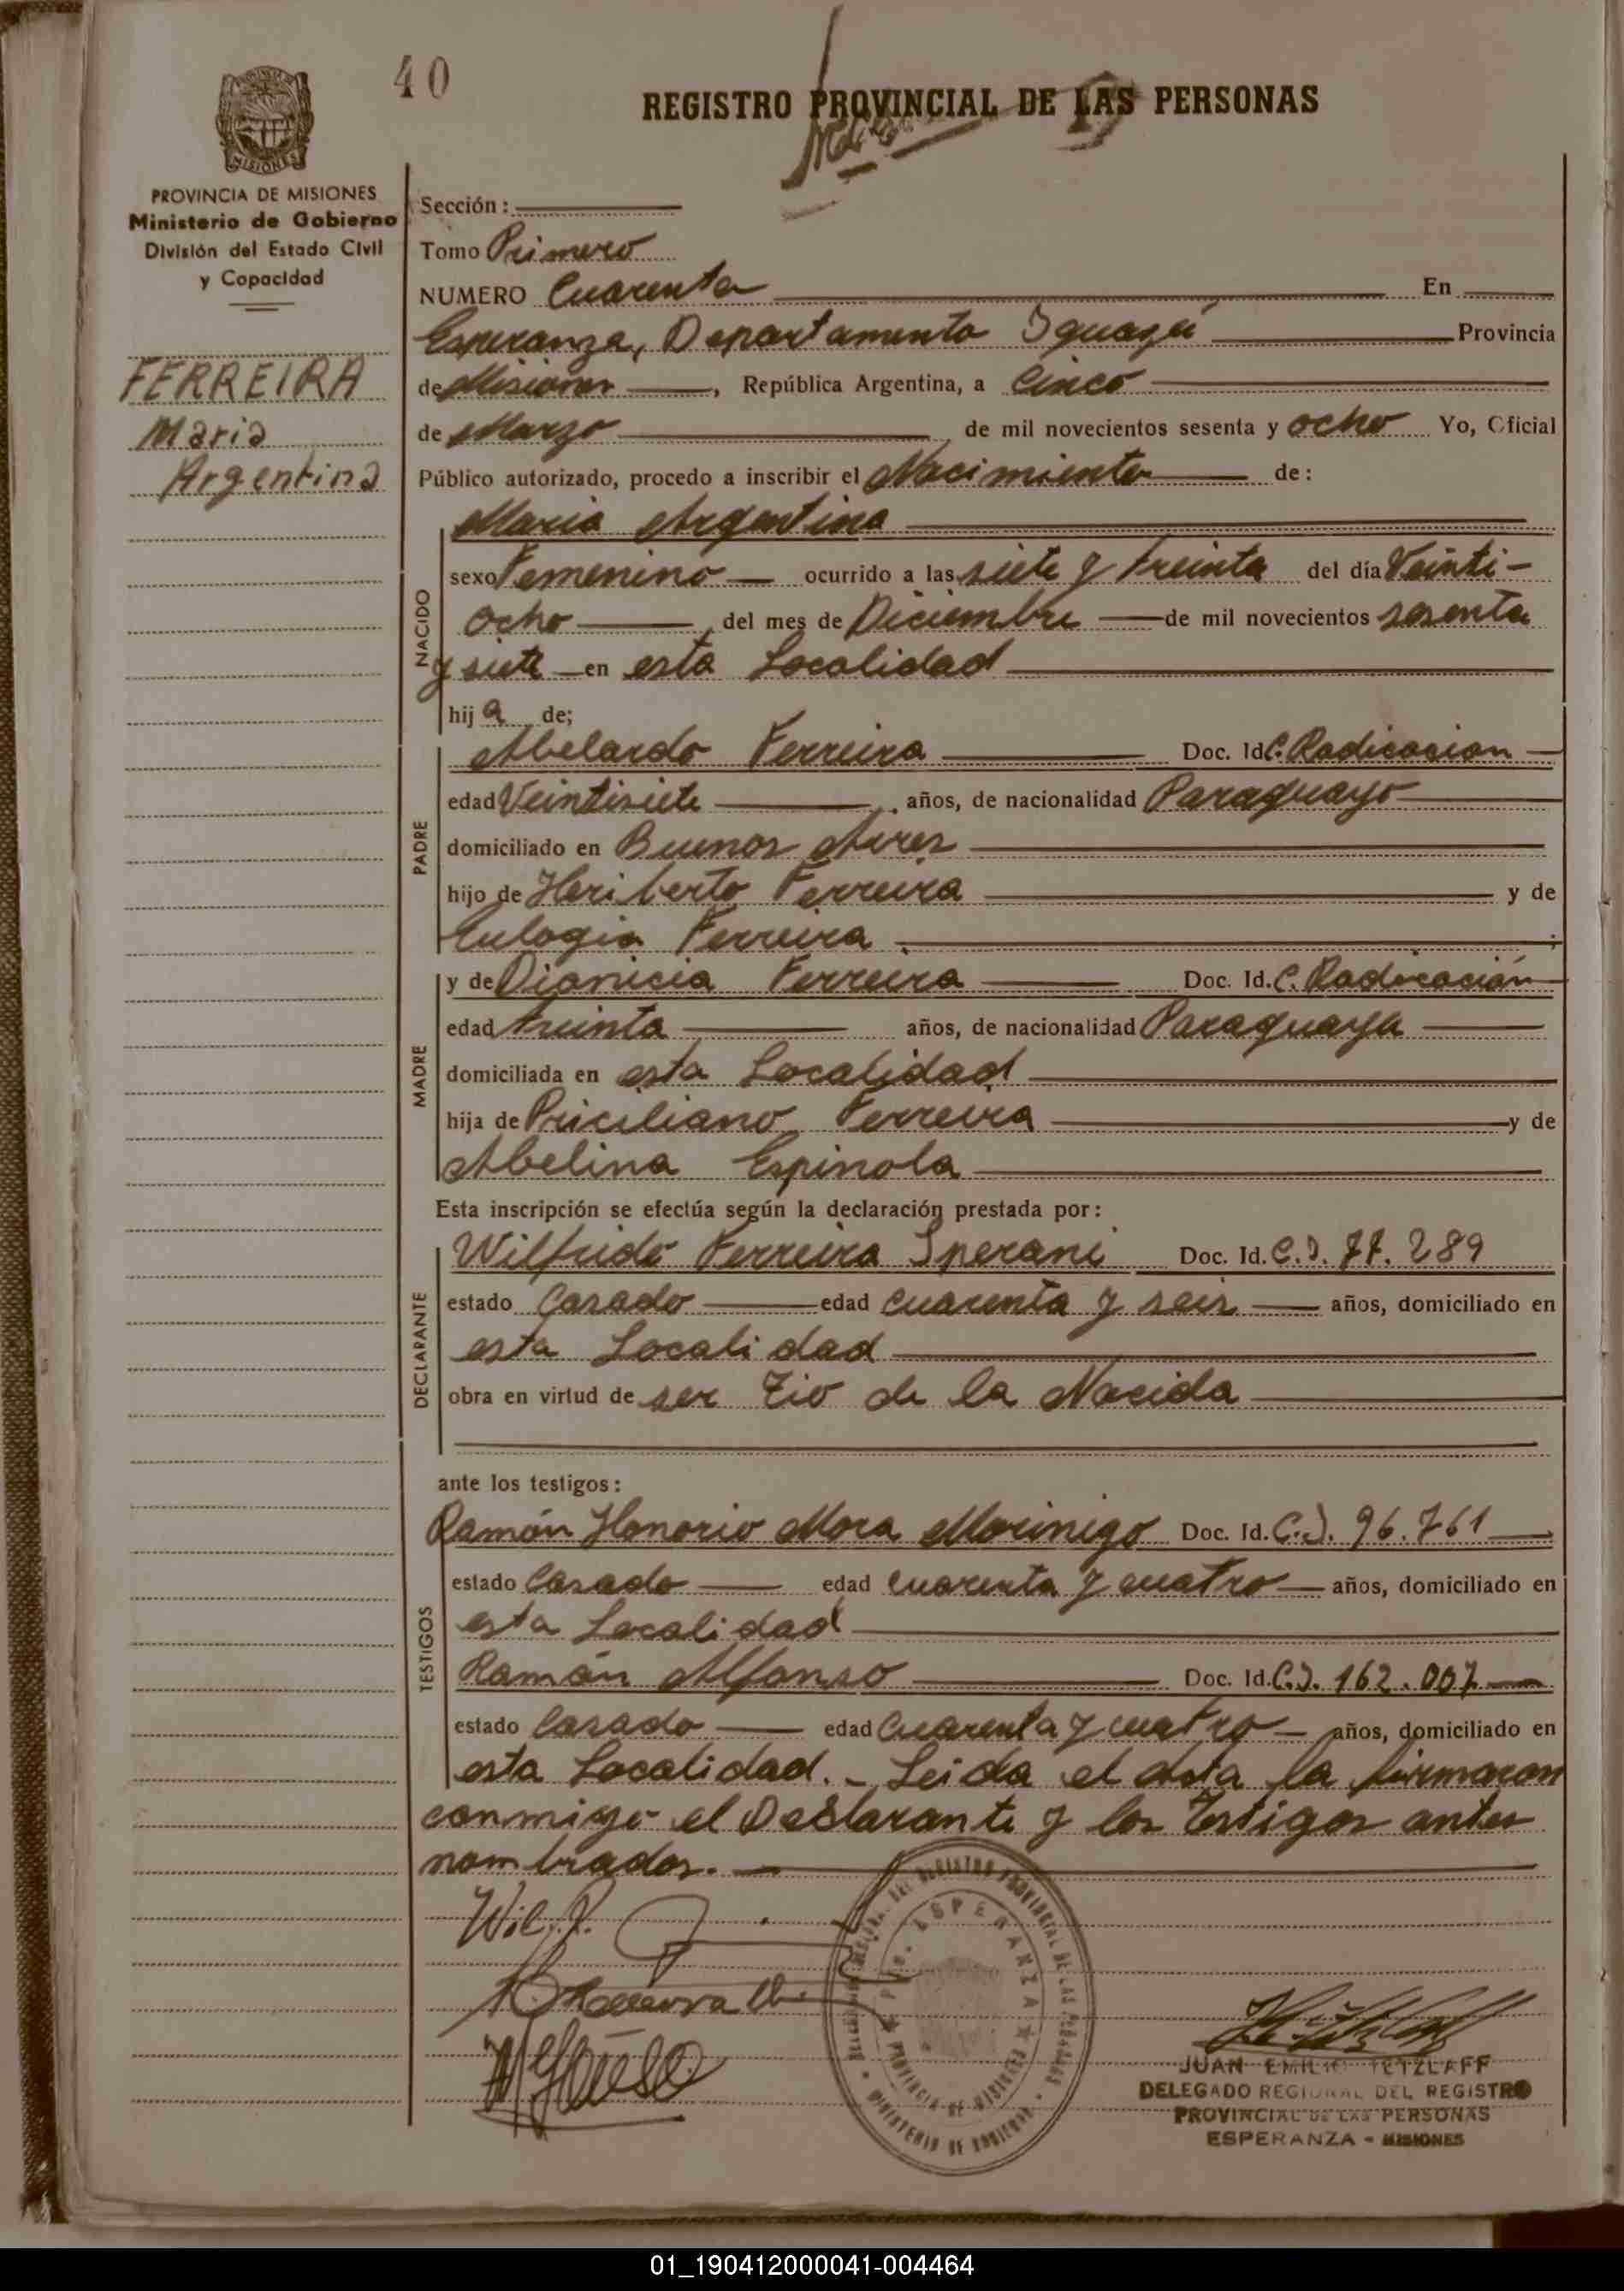 40
REGISTRO PROVINCIAL DE LAS PERSONAS
MISIONES
PROVINCIA DE MISIONES
Ministerio de Gobierno
División del Estado Civil
y Capacidad
FERREIRA
Maria
Argentina
Sección:
Tomo Primero
NUMERO Cuarenta En
Esperanza, Departamento Iguazú Provincia
de Misiones, República Argentina, a Cinco
de Marzo de mil novecientos sesenta y ocho Yo, Oficial
Público autorizado, procedo a inscribir el Nacimiento de:
NACIDO
Maria Argentina
sexo Femenino ocurrido a las siete y treinta del día Veinti-
ocho del mes de Diciembre de mil novecientos sesenta
y siete en esta Localidad
hija de;
PADRE
Abelardo Ferreira Doc. Id. C. Radicacion
edad Veintisiete años, de nacionalidad Paraguayo
domiciliado en Buenos Aires
hijo de Heriberto Ferreira y de
Eulogia Ferreira
MADRE
y de Dionicia Ferreira Doc. Id. C. Radicación
edad treinta años, de nacionalidad Paraguaya
domiciliada en esta Localidad
hija de Priciliano Ferreira y de
Abelina Espinola
Esta inscripción se efectúa según la declaración prestada por:
DECLARANTE
Wilfrido Ferreira Sperani Doc. Id. C.I. 77.289
estado Casado edad cuarenta y seis años, domiciliado en
esta Localidad
obra en virtud de ser Tio de la Nacida
ante los testigos:
TESTIGOS
Ramón Honorio Mora Morinigo Doc. Id. C.I. 96.761
estado Casado edad cuarenta y cuatro años, domiciliado en
esta Localidad
Ramón Alfonso Doc. Id. C.I. 162.007
estado Casado edad Cuarenta y cuatro años, domiciliado en
esta Localidad. - Leida el Acta la firmaron
conmigo el Declarante y los Testigos antes
nombrados.
ESPERANZA
PROVINCIA DE MISIONES
MINISTERIO DE GOBIERNO
Alfonso
JUAN EMILIO TETZLAFF
DELEGADO REGIONAL DEL REGISTRO
PROVINCIAL DE LAS PERSONAS
ESPERANZA - MISIONES
01_190412000041-004464